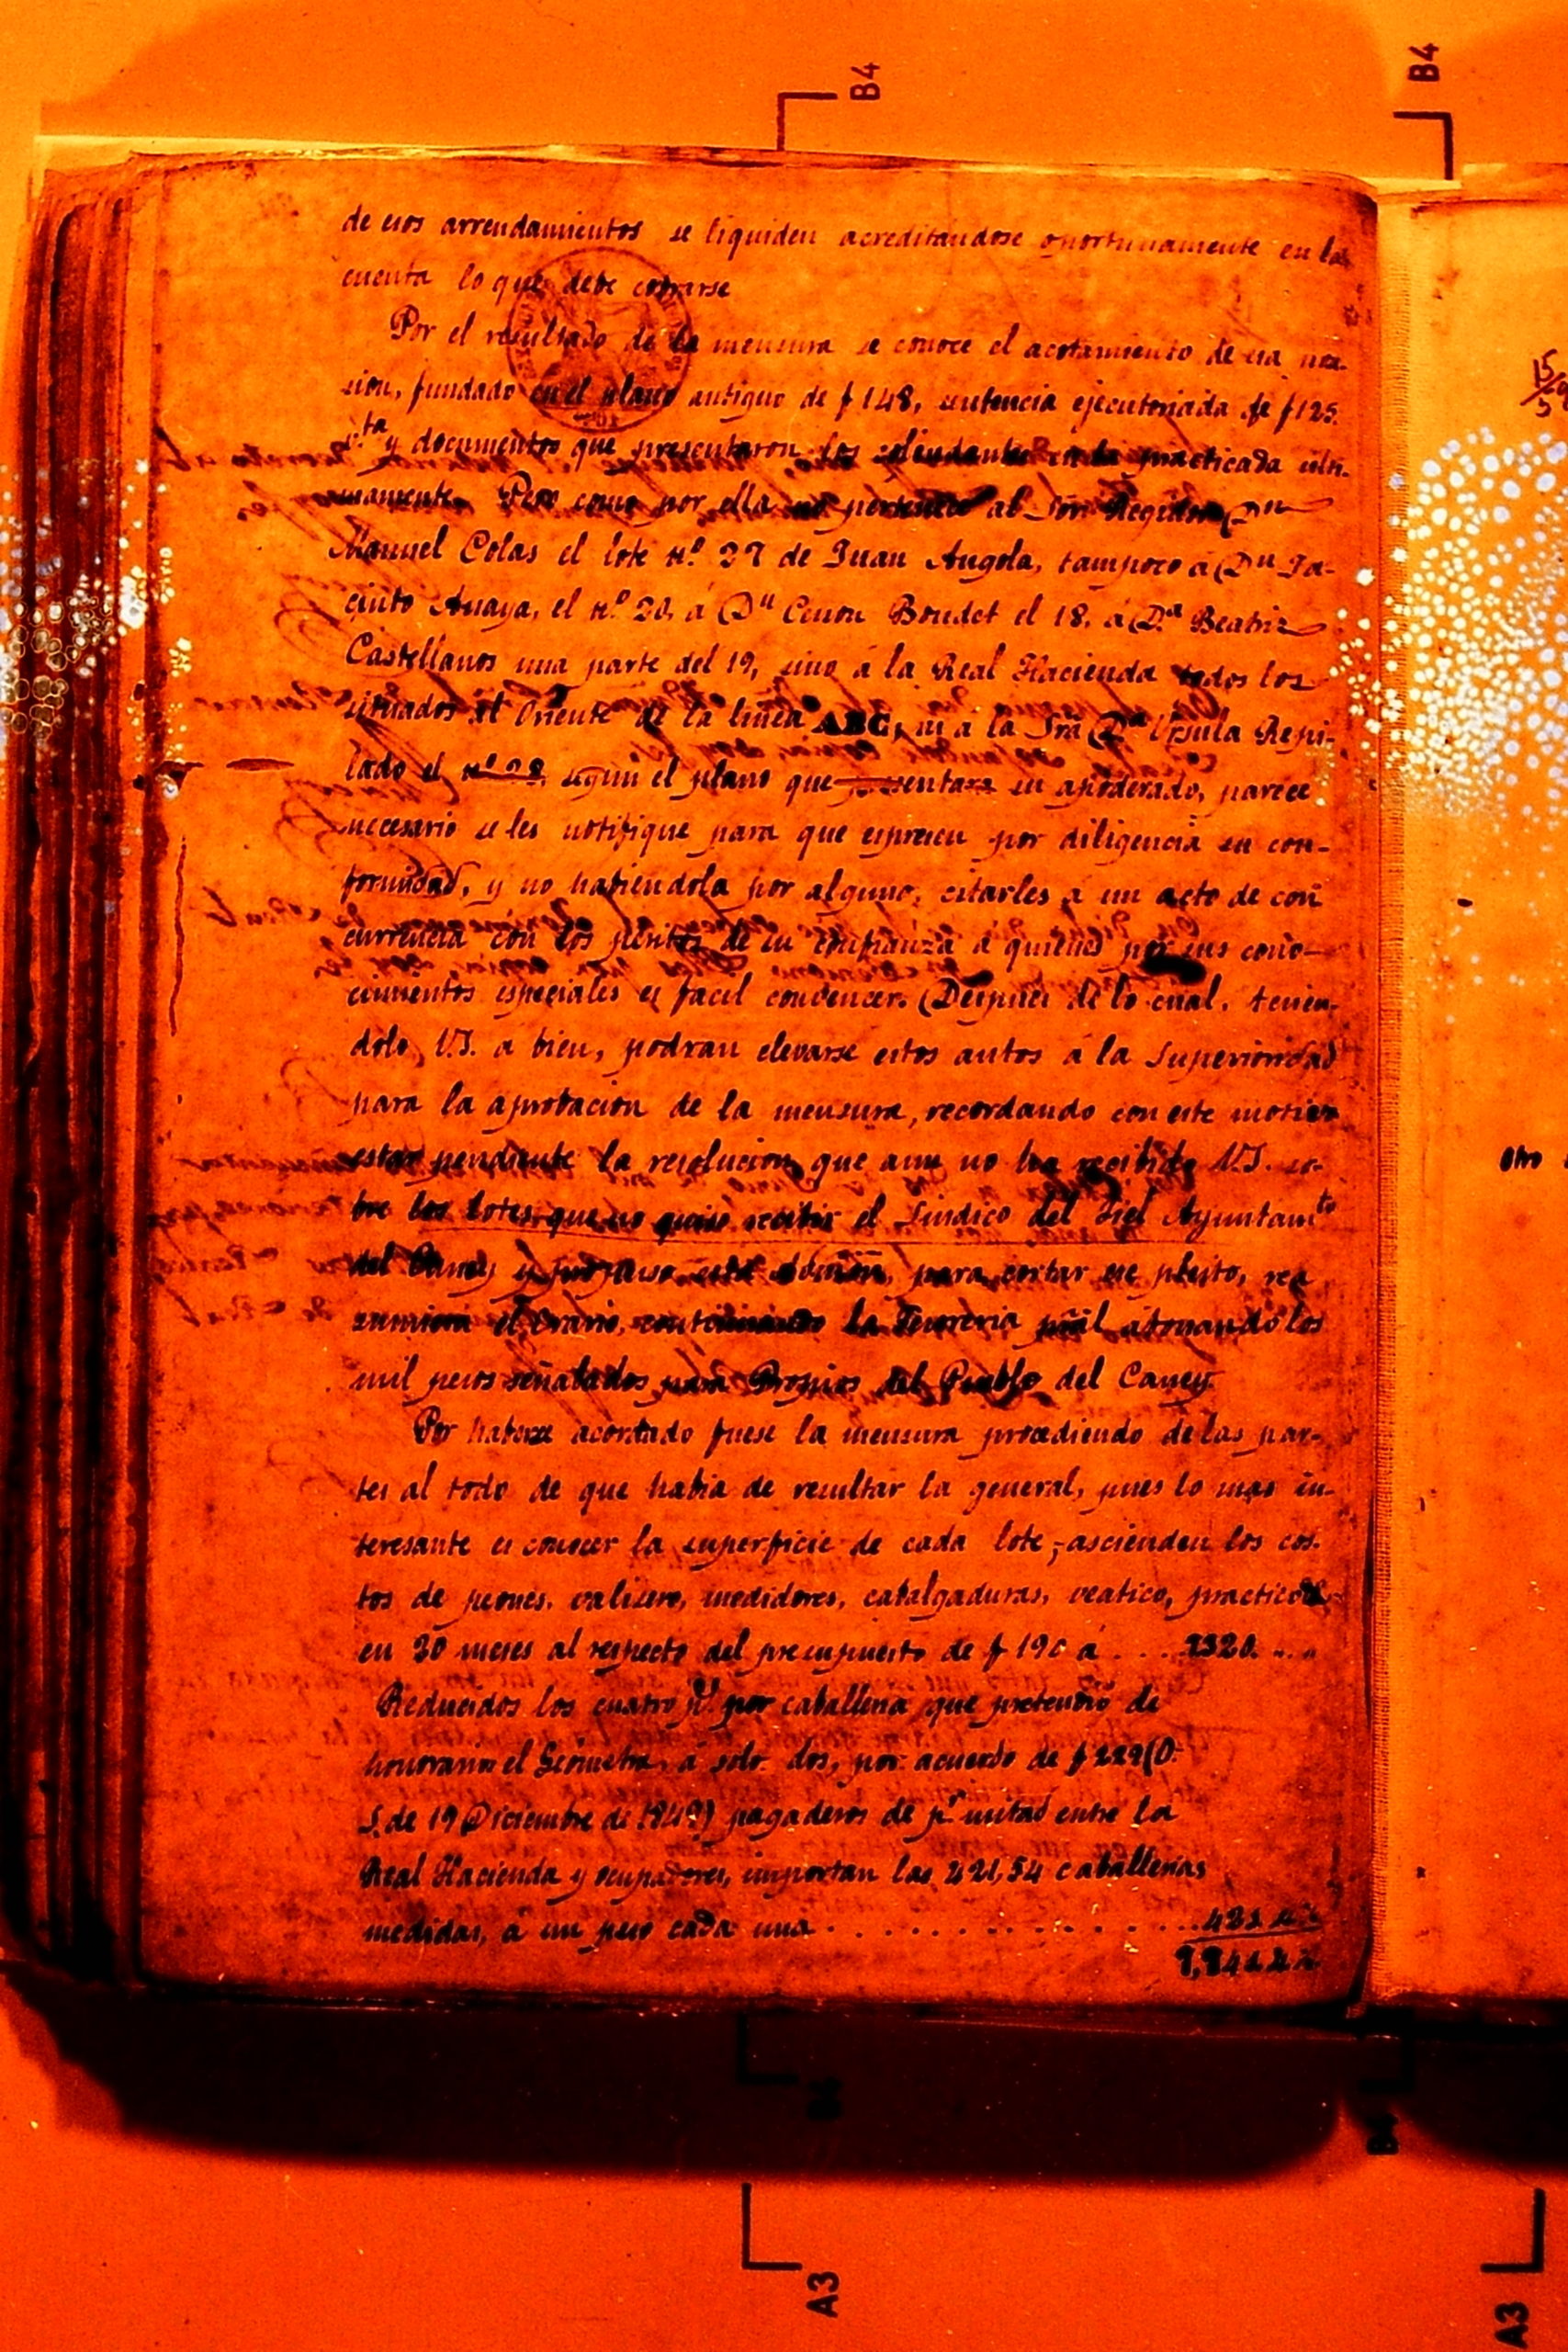 B4
B4
de esos arrendamientos se liquiden acreditandose oportunamente en la
cuenta lo que debe cobrarse
Por el resultado de la mensura se conoce el acotamiento de esa
sion, fundado en el plano antiguo de f 148, sentencia ejecutoriada de f 125.
y documentos que presentaron los colindantes en la practicada ulti-
mamente. Pero como por ella no pertenece al Sor. Regidor Dn
Manuel Colas el lote nº. 27 de Juan Angola, tampoco á Dn Ja-
cinto Anaya, el nº. 20, á Dn Cenon Boudet el 18, á Da Beatriz
Castellanos una parte del 19, sino á la Real Hacienda todos los
situados al Oriente de la linea ABC, ni a la Sra Da Ursula Repi-
lado el nº 28, segun el plano que presentara su apoderado, parece
necesario se les notifique para que espresen por diligencia su con-
formidad, y no habiendola por alguno, citarles a un acto de con
currencia con los peritos de su confianza á quienes por sus cono-
cimientos especiales es facil convencer. Despues de lo cual, tenien-
dolo V.S. a bien, podran elevarse estos autos á la Superioridad
para la aprobacion de la mensura, recordando con este motivo
estar pendiente la resolucion que aun no ha recibido V.S. so-
bre los lotes que no quiso recibir el Sindico del Fiel Ayuntamto
del Caney para cortar ese pleito, rea
sumiera el Erario, continuando la Tesoreria pñal abonando los
mil pesos señalados para Propios del Pueblo del Caney.
Por haberse acordado fuese la mensura procediendo de las par-
tes al todo de que habia de resultar la general, pues lo mas in-
teresante es conocer la superficie de cada lote, ascienden los cos-
tos de peones, valizero, medidores, cabalgaduras, veatico, practicos
en 30 meses al respecto del presupuesto de f 190 á . . . 1320. . . .
Reducidos los cuatro ps. por caballeria que pretendió de
honorario el Geómetra, á solo dos, por acuerdo de f 229 (D.
S. de 19 Diciembre de 1849) pagaderos de pr mitad entre la
Real Hacienda y ocupadores, importan las 421,54 caballerias
medidas, á un peso cada una . . . . . . . . . . . 421
15
Otro
B4
A3
A3